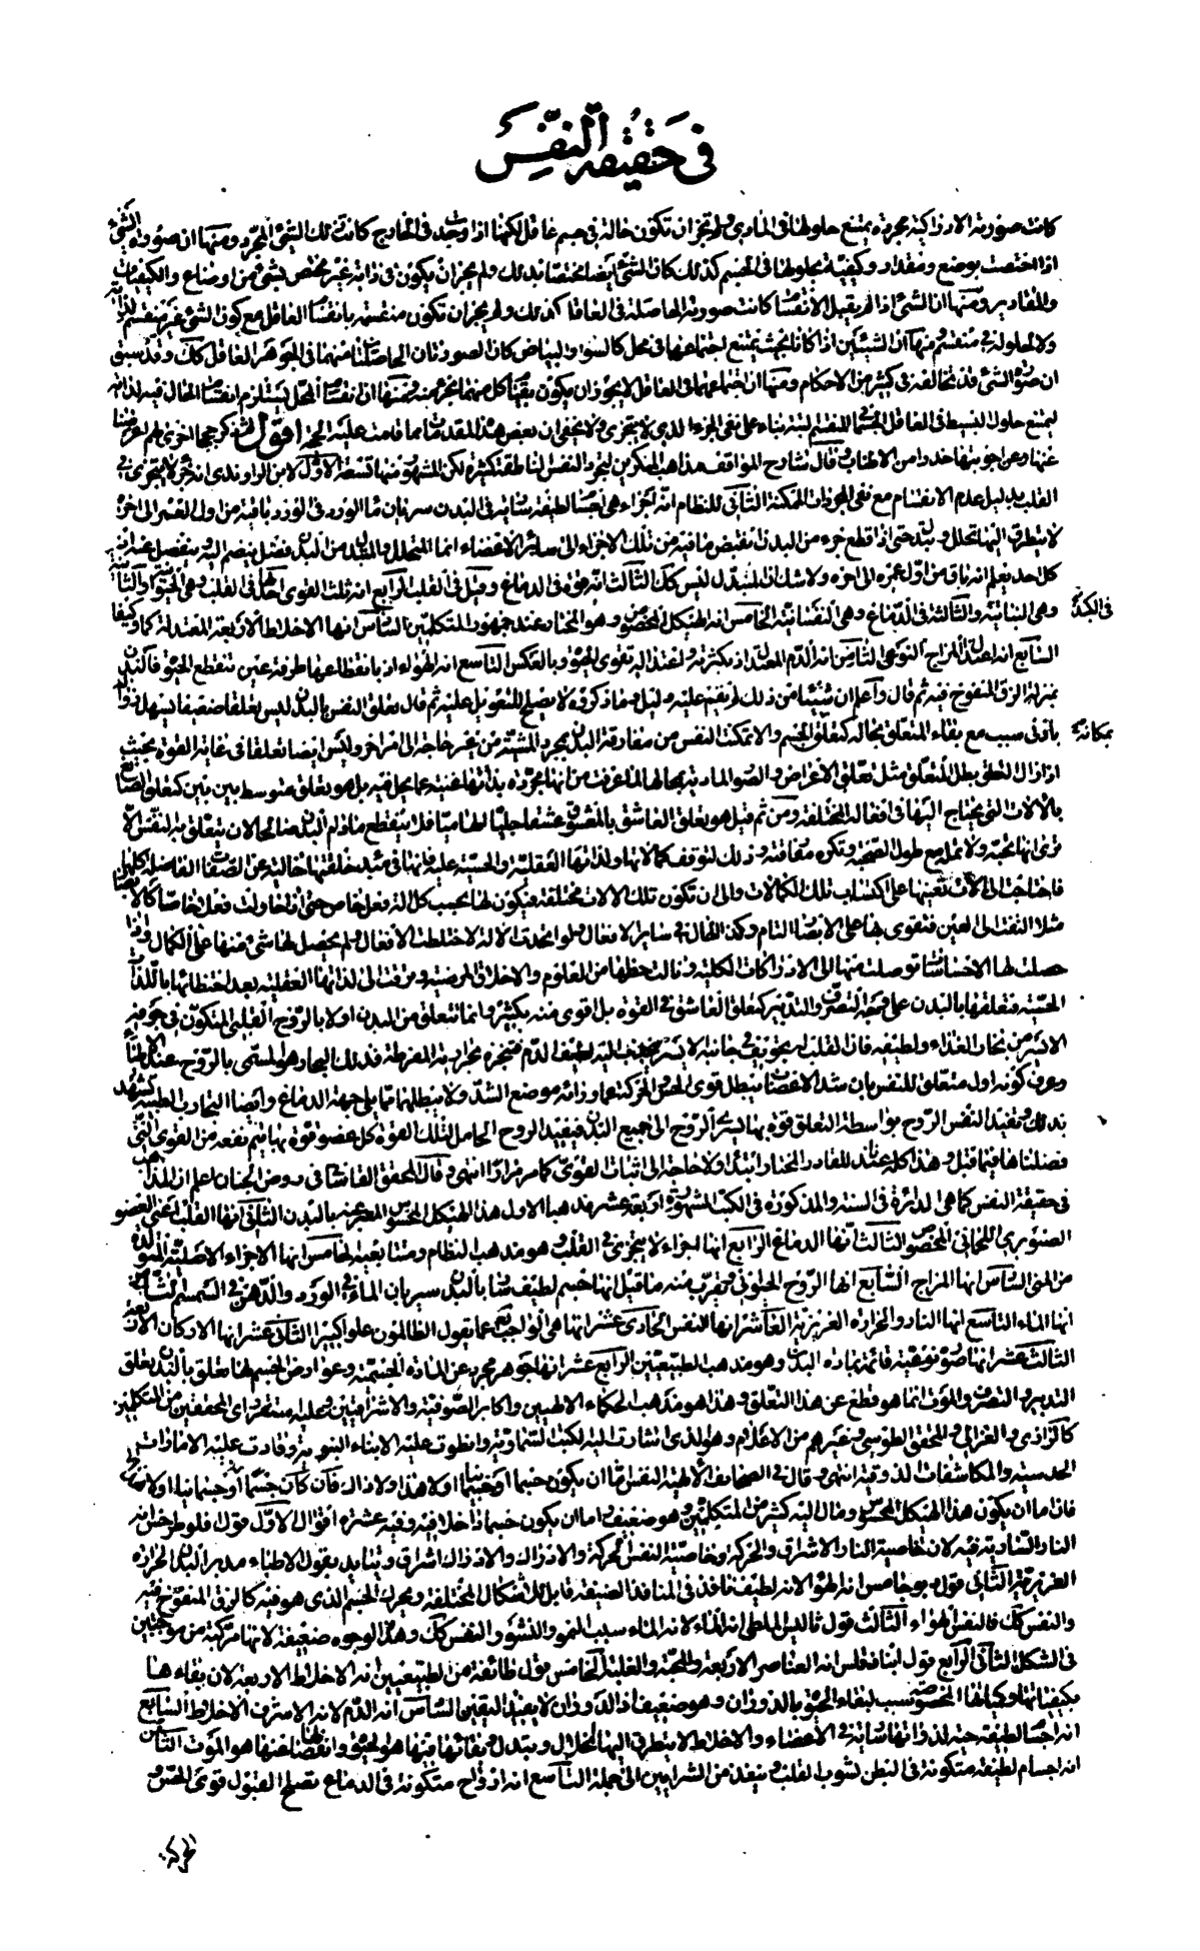 في حقيقة النفس
كانت صورته الادراكية مجردة يمتنع حلولها في المادي ولم تجز ان تكون حالة في جسم عاقل لكنها اذا وجدت في الخارج كانت تلك الشيء المجرد ومنها ان صورة الشيء
اذا اختصت بوضع ومقدار وكيفية بحلولها في الجسم كذلك كان الشيء ايضا مختصا بذلك ولم يجز ان يكون في ذاته غير مختص بشيء من اوضاع والكيفيات
والمقادير ومنها ان الشيء اذا لم يقبل الانقسام كانت صورته الحاصلة في العاقل كذلك ولم يجز ان تكون منقسمة بانقسام العاقل مع كون الشيء غير منقسم لذاته
ولا لحلوله في منقسم ومنها ان الشيئين اذا كانا بحيث يمتنع اجتماعهما في محل كالسواد والبياض كان الصورتان الحاصلتان منهما في الجوهر العاقل كذلك وقد سبق
ان صورة الشيء قد تخالفه في كثير من الاحكام ومنها ان اجتماعهما في العاقل لا يجوز ان يكون بقيام كل منهما بجزء منه ومنها ان انقسام المحل يستلزم انقسام الحال فيه لذاته
ليمتنع حلول البسيط في العاقل الجسماني المنقسم البتة بناء على نفي الجزء الذي لا يتجزى ولا يخفى ان بعض هذه المقدمات مما قامت عليه الحجة اقول ثم ذكر حججا اخرى لهم اعرضنا
عنها وعن اجوبتها حذرا من الاطناب وقال شارح المواقف مذاهب المنكرين لتجرد النفس الناطقة كثيرة لكن المشهور منها تسعة الاول لابن الراوندي انه جزء لا يتجزى في
القلب بدليل عدم الانقسام مع نفي المجردات الممكنة الثاني للنظام انه اجزاء هي اجسام لطيفة سارية في البدن سريان ماء الورد في الورد باقية من اول العمر الى اخره
لا يتطرق اليها تحلل وتبدل حتى اذا قطع جزء من البدن انقبض ما فيه من تلك الاجزاء الى سائر الاعضاء انما المتحلل والمتبدل من البدن فضل ينضم اليه وينفصل عنه اذ
كل احد يعلم انه باق من اول عمره الى اخره ولا شك ان المتبدل ليس كذلك الثالث انه قوة في الدماغ وقيل في القلب الرابع انه ثلث القوى احدها في القلب وهي الحيوانية والثانية
في الكبد
وهي النباتية والثالثة في الدماغ وهي النفسانية الخامس انه الهيكل المخصوص وهو المختار عند جمهور المتكلمين السادس انها الاخلاط الاربعة المعتدلة كما وكيفا
السابع انه اعتدال المزاج النوعي الثامن انه الدم المعتدل اذ بكثرته واعتداله تقوى الحيوة وبالعكس التاسع انه الهواء اذ بانقطاعه طرفة عين تنقطع الحيوة فالبدن
بمنزلة الزق المنفوخ فيه ثم قال واعلم ان شيئا من ذلك لم يقم عليه دليل وما ذكروه لا يصلح للتعويل عليه ثم قال تعلق النفس بالبدن ليس تعلقا ضعيفا يسهل زواله
بادنى سبب مع بقاء المتعلق بحاله كتعلق الجسم بمكانه والا تمكنت النفس من مفارقة البدن بمجرد المشية من غير حاجة الى امر اخر وليس ايضا تعلقا في غاية القوة بحيث
اذا زال التعلق بطل المتعلق مثل تعلق الاعراض والصور المادية بمحالها لما عرفت من انها مجردة بذاتها غنية عما يحل فيه بل هو تعلق متوسط بين بين كتعلق الصانع
بالالات التي يحتاج اليها في افعاله المختلفة ومن ثم قيل هو تعلق العاشق بالمعشوق عشقا جبليا الهاميا فلا ينقطع ما دام البدن صالحا لان يتعلق به النفس الا
ترى انها تحبه ولا تمله مع طول الصحبة وتكره مفارقته وذلك لتوقف كمالاتها ولذاتها العقلية والحسية عليه فانها في مبدء خلقتها خالية عن الصفات الفاضلة كلها
فاحتاجت الى الات تعينها على اكتساب تلك الكمالات والى ان تكون تلك الالات مختلفة فيكون لها بحسب كل الة فعل خاص حتى اذا حاولت فعلا خاصا كالابصار
مثلا التفت الى العين فتقوى بها على الابصار التام وكذا الحال في سائر الافعال ولو اتحدت الالة لاختلطت الافعال ولم يحصل لها شيء منها على الكمال واذا
حصلت لها الاحساسات توصلت منها الى الادراكات الكلية ونالت حظها من العلوم والاخلاق المرضية وترقت الى لذاتها العقلية بعد احتظائها باللذات
الحسية فتعلقها بالبدن على وجه التصرف والتدبير كتعلق العاشق في القوة بل اقوى منه بكثير وانما تتعلق من البدن اولا بالروح القلبي المتكون في جوفه
الايسر من بخار الغذاء ولطيفه فان القلب له تجويف في جانبه الايسر ينجذب اليه لطيف الدم فيبخره بحرارته المفرطة فذلك البخار هو المسمى بالروح عند الاطباء
وعرف كونه اول متعلق للنفس بان شد الاعصاب يبطل قوى الحس والحركة عما وراء موضع الشد ولا يبطلهما مما يلي جهة الدماغ وايضا التجارب الطبية تشهد
بذلك وتفيد النفس الروح بواسطة التعلق قوة بها يسري الروح الى جميع البدن فيفيد الروح الحامل لتلك القوة كل عضو قوة بها يتم نفعه من القوى التي
فصلناها فيما قبل وهذا كله عندنا للقادر المختار ابتداء ولا حاجة الى اثبات القوى كما مر مرارا انتهى وقال المحقق القاشاني في روض الجنان اعلم ان المذاهب
في حقيقة النفس كما هي الدائرة في السنة والمذكورة في الكتب المشهورة اربعة عشر مذهبا الاول هذا الهيكل المحسوس المعبر عنه بالبدن الثاني انها القلب اعني العضو
الصنوبري اللحماني المخصوص الثالث انها الدماغ الرابع انها اجزاء لا تتجزى في القلب وهو مذهب النظام ومتابعيه الخامس انها الاجزاء الاصلية المتولدة
من المني السادس انها المزاج السابع انها الروح الحيواني ويقرب منه ما قيل انها جسم لطيف سار بالبدن سريان الماء في الورد والدهن في السمسم الثامن
انها الماء التاسع انها النار والحرارة الغريزية العاشر انها النفس الحادي عشر انها هي الواجب تعالى عما يقول الظالمون علوا كبيرا الثاني عشر انها الاركان الاربعة
الثالث عشر انها صورة نوعية قائمة بمادة البدن وهو مذهب الطبيعيين الرابع عشر انها جوهر مجرد عن المادة الجسمية وعوارض الجسم لها تعلق بالبدن تعلق
التدبير والتصرف والموت انما هو قطع عن هذا التعلق وهذا هو مذهب الحكماء الالهيين واكابر الصوفية والاشراقيين وعليه استقر رأي المحققين من المتكلمين
كالرازي والغزالي والمحقق الطوسي وغيرهم من الاعلام وهو الذي اشارت اليه الكتب السماوية وانطوت عليه الانباء النبوية وقادت عليه الامارات
الحدسية والمكاشفات الذوقية انتهى وقال في الصحائف الالهية النفس اما ان يكون جسما او جسمانيا او لا هذا ولا ذاك فان كان جسما
فاما ان يكون هذا الهيكل المحسوس ومال اليه كثير من المتكلمين وهو ضعيف واما ان يكون جسما داخلا فيه وفيه عشرة اقوال الاول قول افلوطرخس انه
النار السارية فيه لان خاصية النار الاشراق والحركة وخاصية النفس الحركة والادراك والادراك اشراق ويتايد بقول الاطباء مدبر البدن الحرارة
الغريزية الثاني قول ديوجانس انه الهواء لانه لطيف نافذ في المنافذ الضيقة قابل للاشكال المختلفة ويحرك الجسم الذي هو فيه كالزق المنفوخ فيه
والنفس كذلك فالنفس الهواء الثالث قول ثاليس الملطي انه الماء لان الماء سبب النمو والنشو والنفس كذلك وهذه الوجوه ضعيفة لانها مركبة من موجبتين
في الشكل الثاني الرابع قول انبادقلس انه العناصر الاربعة والمحبة والغلبة الخامس قول طائفة من الطبيعيين انه الاخلاط الاربعة لان بقاءها
بكيفياتها وكمياتها المخصوصة سبب لبقاء الحيوة بالدوران وهو ضعيف اذ الدوران لا يفيد اليقين السادس انه الدم لانه الاشرف الاخلاط السابع
انه اجسام لطيفة حية لذواتها سارية في الاعضاء والاخلاط لا يتطرق اليها انحلال وتبدل وبقاؤها فيها هو الحيوة وانفصالها عنها هو الموت الثامن
انه اجسام لطيفة متكونة في البطن لشوب القلب وينفذ من الشرايين الى جملة التاسع انه ارواح متكونة في الدماغ تصلح لقبول قوى الحس و
الحركة